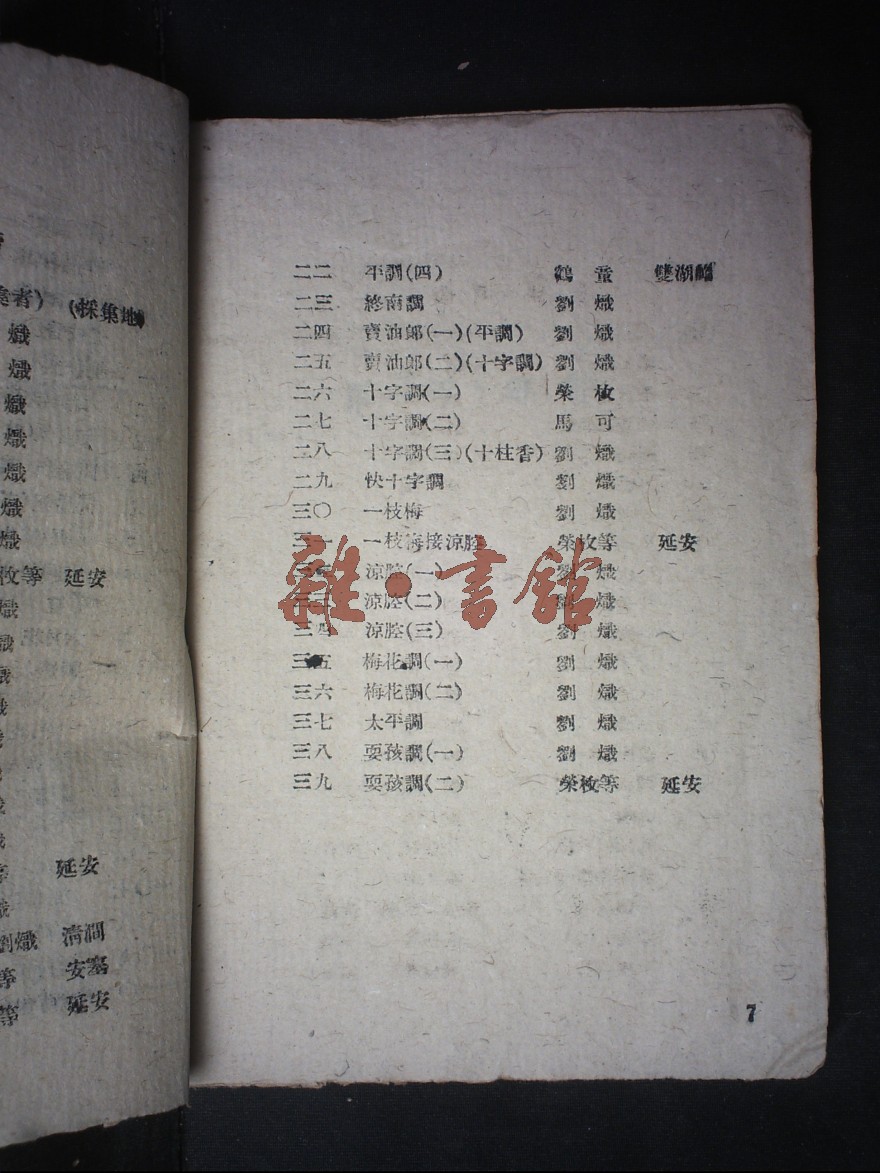 (採集地)
熾
熾
熾
熾
熾
熾
熾
枚等 延安
熾
延安
劉熾 清澗
等 安塞
等 延安
二二 平調(四) 鶴童 雙湖峪
二三 終南調 劉熾
二四 賣油郎(一)(平調) 劉熾
二五 賣油郎(二)(十字調) 劉熾
二六 十字調(一) 榮枚
二七 十字調(二) 馬可
二八 十字調(三)(十柱香) 劉熾
二九 快十字調 劉熾
三〇 一枝梅 劉熾
三一 一枝梅接涼腔 榮枚等 延安
三二 涼腔(一) 劉熾
三三 涼腔(二) 劉熾
三四 涼腔(三) 劉熾
三五 梅花調(一) 劉熾
三六 梅花調(二) 劉熾
三七 太平調 劉熾
三八 耍孩調(一) 劉熾
三九 耍孩調(二) 榮枚等 延安
雜·書館
7